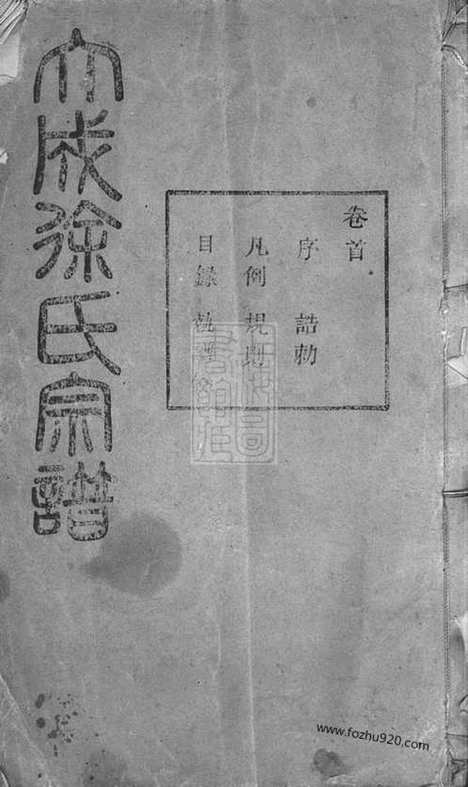 卷首
序 誥勅
凡例 規則
目錄
大成徐氏宗譜
www.fozhu920.com